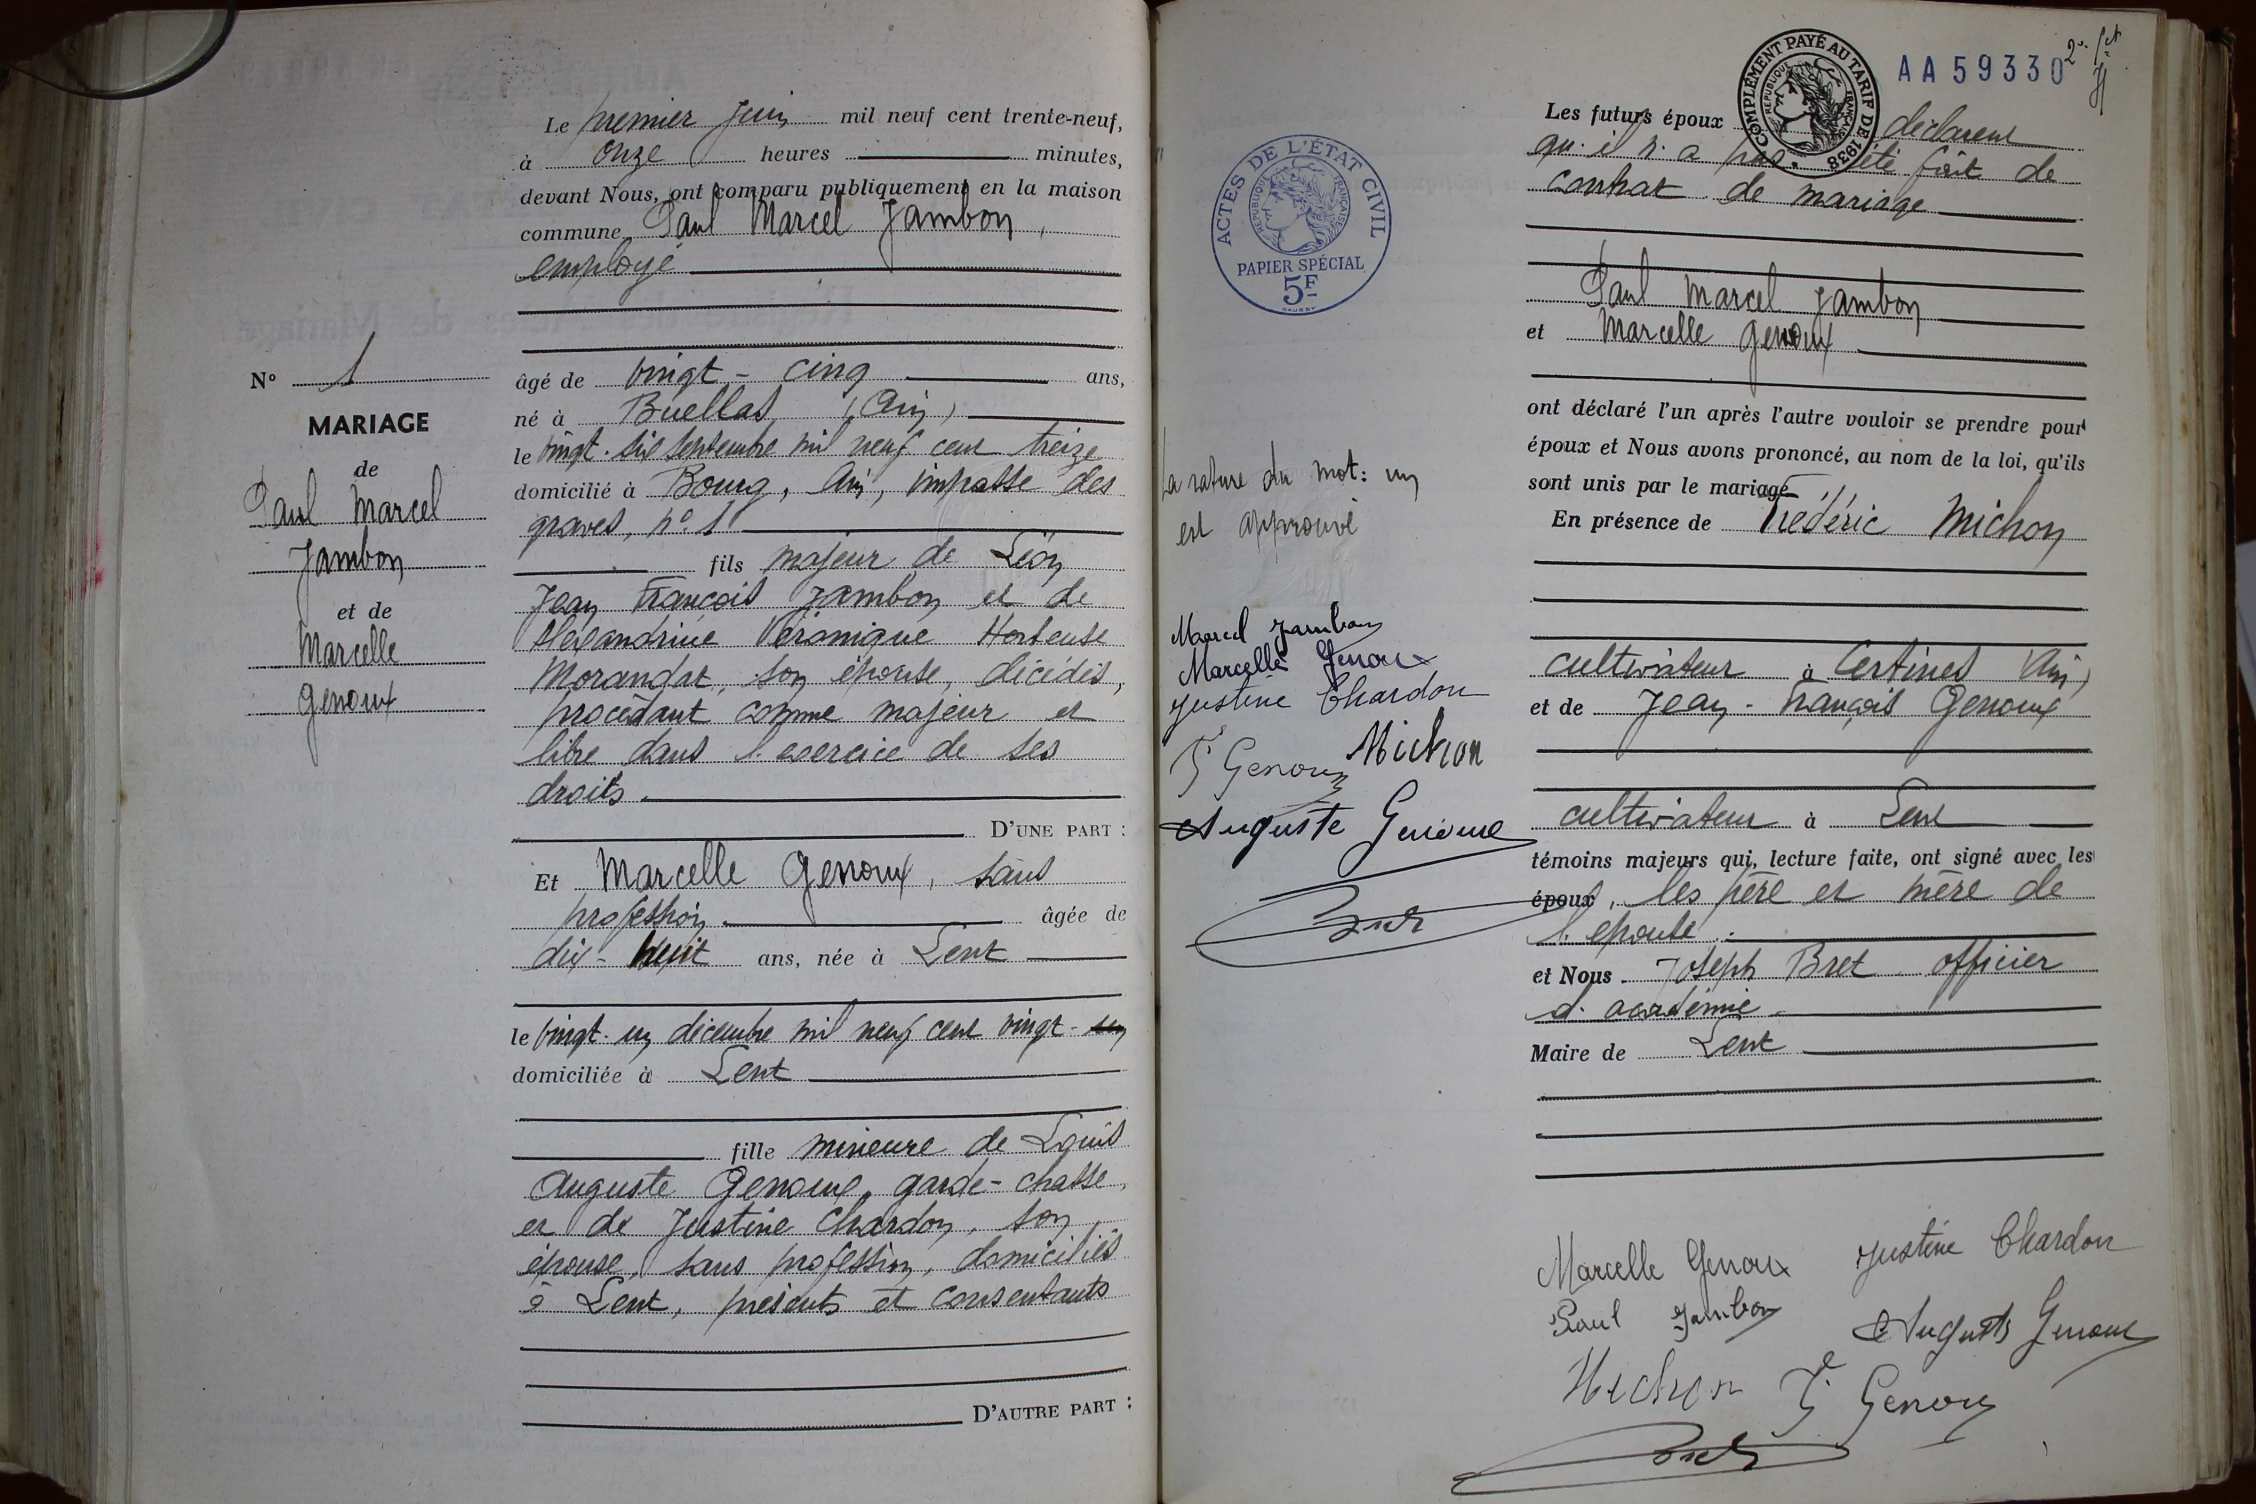 N° 1
MARIAGE
de
Paul Marcel
Jambon
et de
Marcelle
Genoux
Le premier Juin mil neuf cent trente-neuf,
à onze heures minutes,
devant Nous, ont comparu publiquement en la maison
commune Paul Marcel Jambon,
employé
âgé de vingt-cinq ans,
né à Buellas (Ain)
le vingt-six septembre mil neuf cent treize
domicilié à Bourg, Ain, impasse des
graves, n° 1
fils majeur de Léon
Jean François Jambon et de
Alexandrine Véronique Hortense
Morandat, son épouse, décédés,
procédant comme majeur et
libre dans l'exercice de ses
droits.
D'UNE PART :
Et Marcelle Genoux, sans
profession âgée de
dix-huit ans, née à Lent
le vingt-un décembre mil neuf cent vingt-un
domiciliée à Lent
fille mineure de Louis
Auguste Genoux, garde-chasse,
et de Justine Chardon, son
épouse, sans profession, domiciliés
à Lent, présents et consentants
D'AUTRE PART :
ACTES DE L'ÉTAT CIVIL
RÉPUBLIQUE FRANÇAISE
PAPIER SPÉCIAL
5F
La rature du mot: un
est approuvé
Marcel Jambon
Marcelle Genoux
Justine Chardon
F Genoux Michon
Auguste Genoux
Bret
COMPLÉMENT PAYÉ AU TARIF DE 1938
RÉPUBLIQUE FRANÇAISE
AA 59330
Les futurs époux déclarent
qu'il n'a pas été fait de
contrat de mariage
Paul Marcel Jambon
et Marcelle Genoux
ont déclaré l'un après l'autre vouloir se prendre pour
époux et Nous avons prononcé, au nom de la loi, qu'ils
sont unis par le mariage
En présence de Frédéric Michon
cultivateur à Certines (Ain)
et de Jean-François Genoux
cultivateur à Lent
témoins majeurs qui, lecture faite, ont signé avec les
époux, les père et mère de
l'épouse.
et Nous Joseph Bret officier
d'académie
Maire de Lent
Marcelle Genoux Justine Chardon
Paul Jambon Auguste Genoux
Michon F Genoux
Bret